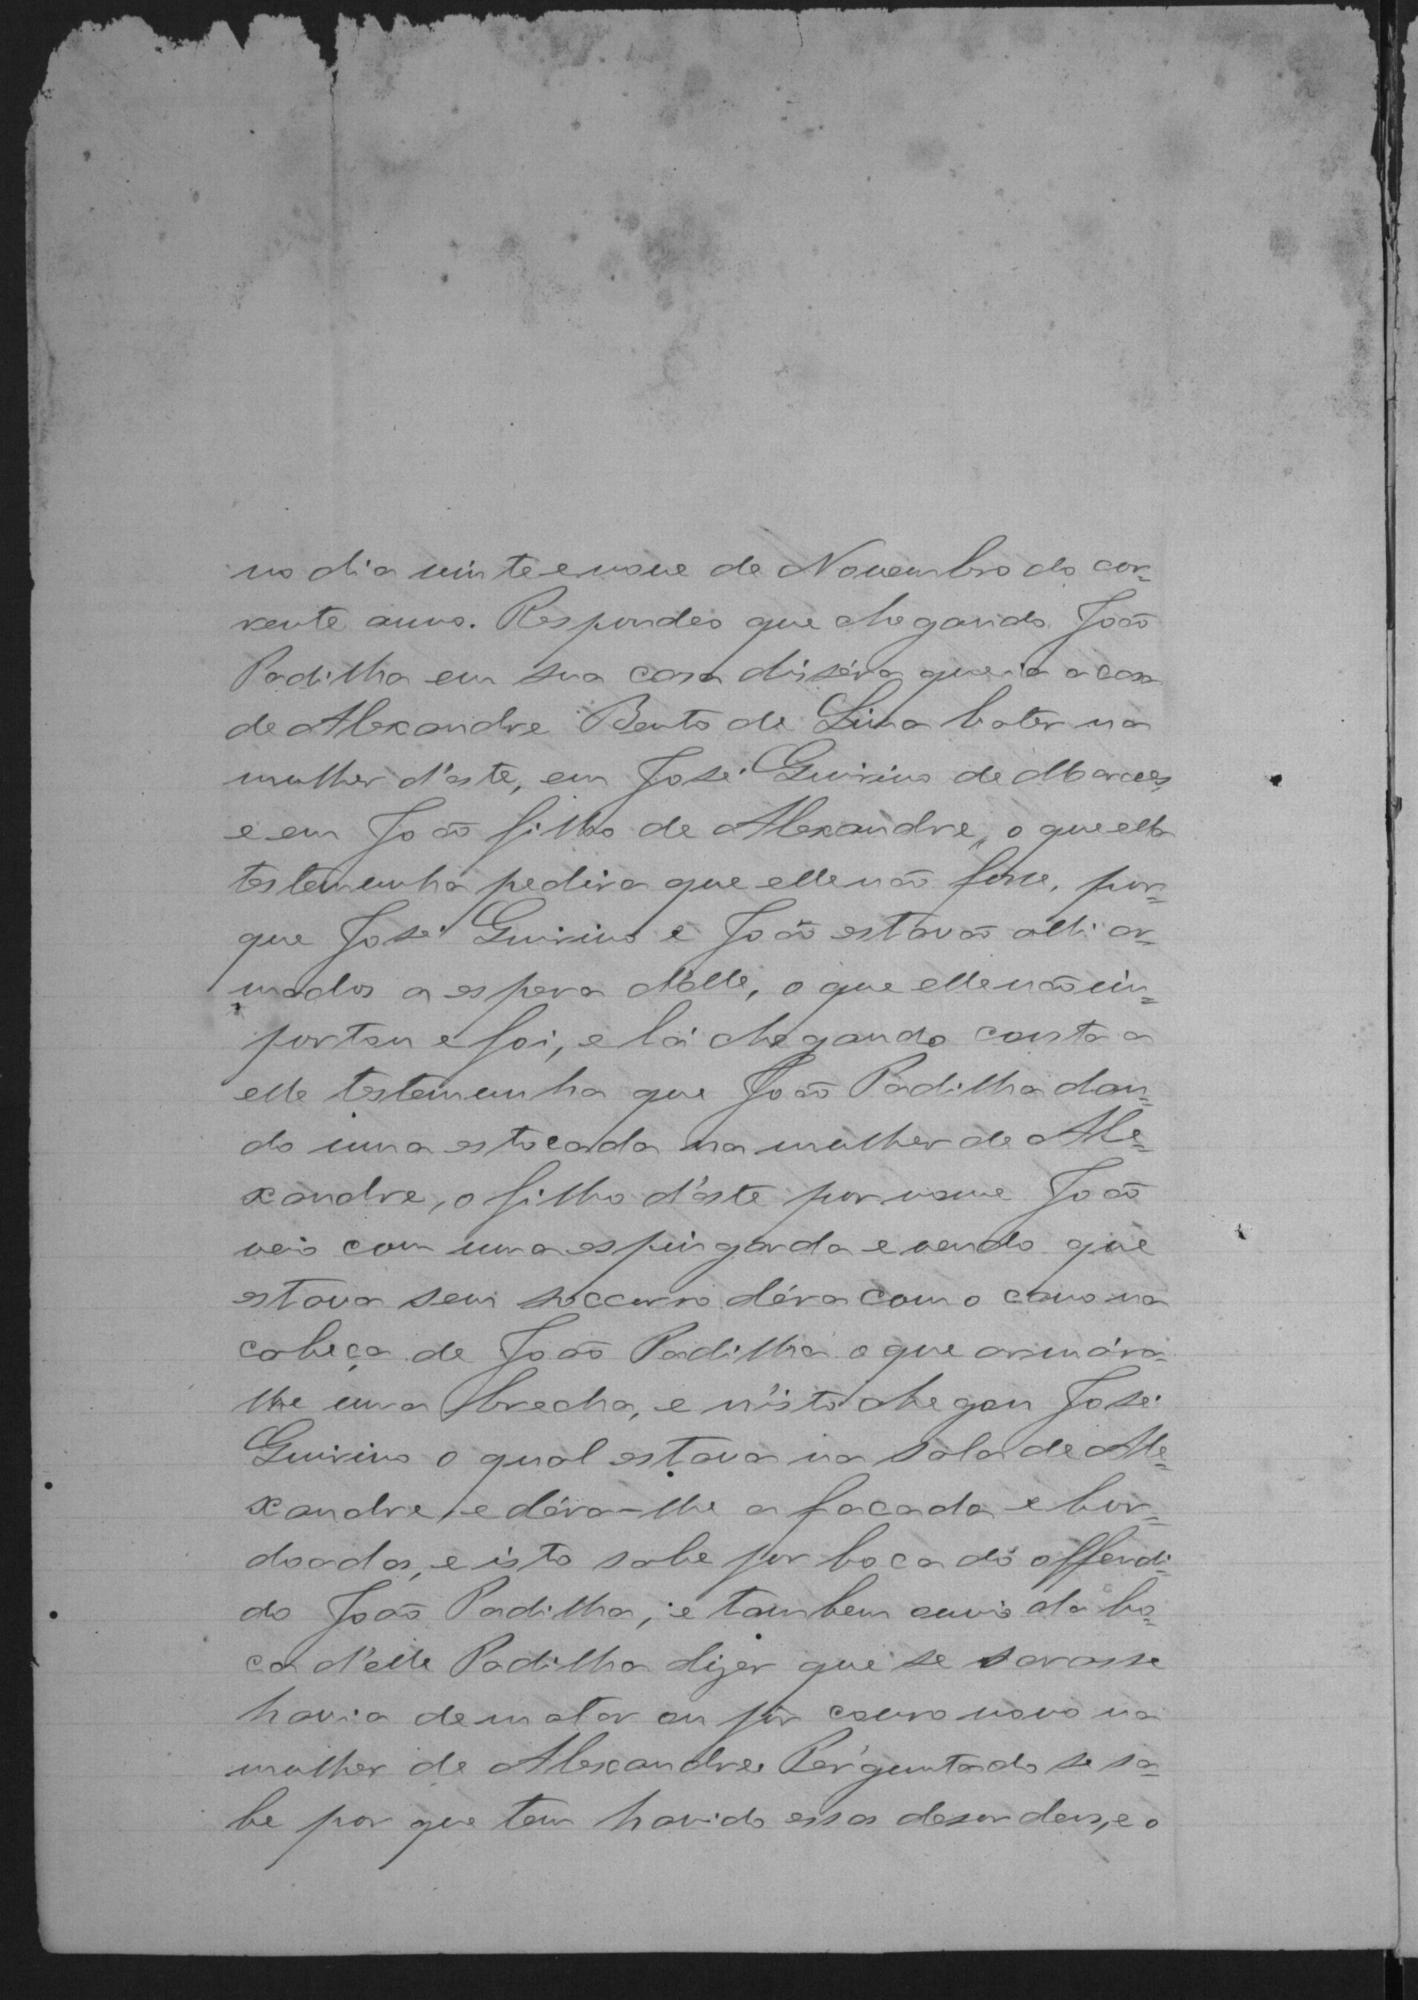 no dia vinte e nove de Novembro do cor=
rente anno. Respondeo que chegando João
Padilha em sua casa disséra que ia a casa
de Alexandre Bento de Lima bater na
mulher d'este, em José Guirino de Moraes,
e em João filho de Alexandre, o que elle
testemunha pedira que elle não fosse, por=
que José Guirino e João estavão alli ar=
mados a espera d'elle, o que elle não im=
portou e foi, e lá chegando consta a
elle testemunha que João Padilha dan=
do uma estocada na mulher de Ale=
xandre, o filho d'este por nome João
veio com uma espingarda e vendo que
estava sem soccorro déra com o cano na
cabeça de João Padilha o que arrumára=
lhe uma brecha, e n'isto chegou José
Guirino o qual estava na sala de Ale=
xandre, e déra-lhe a facada e bor=
doadas, e isto sabe por boca do offendi=
do João Padilha, e tambem ouvio da bo=
ca d'elle Padilha dizer que se sarasse
havia de matar ou pôr couro novo na
mulher de Alexandre. Perguntado se sa=
be por que tem havido essas desordens, e o